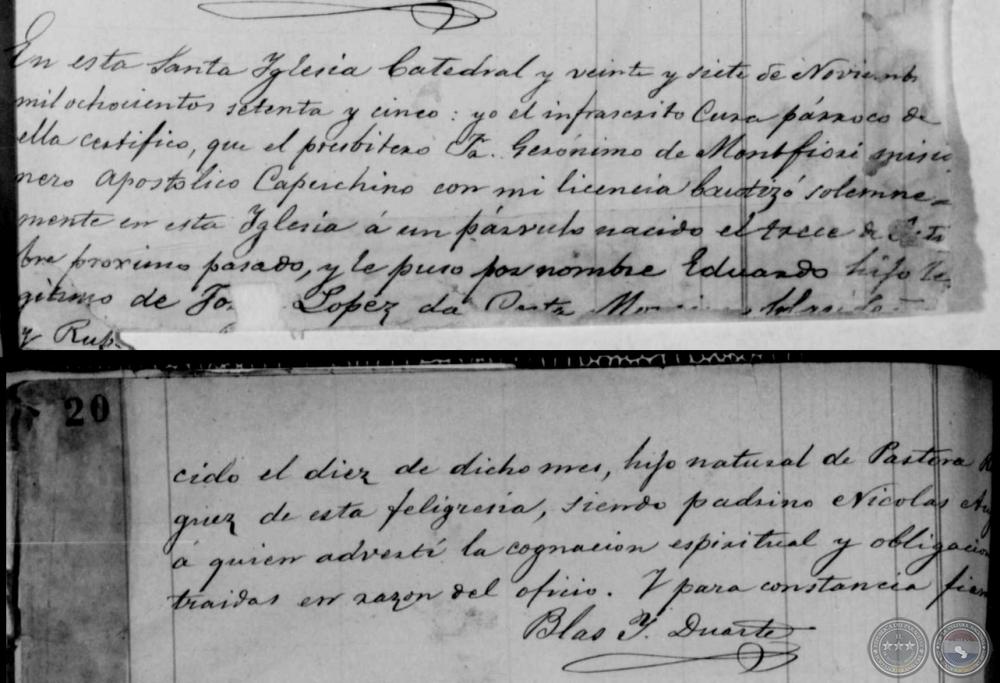 En esta Santa Iglesia Catedral y veinte y siete de Noviemb
mil ochocientos setenta y cinco: yo el infrascrito Cura párroco de
ella certifico, que el presbitero Fr. Gerónimo de Montfiori misio
nero Apostolico Capuchino con mi licencia bautizó solemne-
mente en esta Iglesia á un párvulo nacido el trece de
bre proximo pasado, y le puso por nombre Eduardo hijo le-
gitimo de Lopez da
y
20
cido el diez de dicho mes, hijo natural de Pastora
guez de esta feligresia, siendo padrino Nicolas
á quien advertí la cognacion espiritual y obligacion
traidas en razon del oficio. Y para constancia firm
Blas Y. Duarte